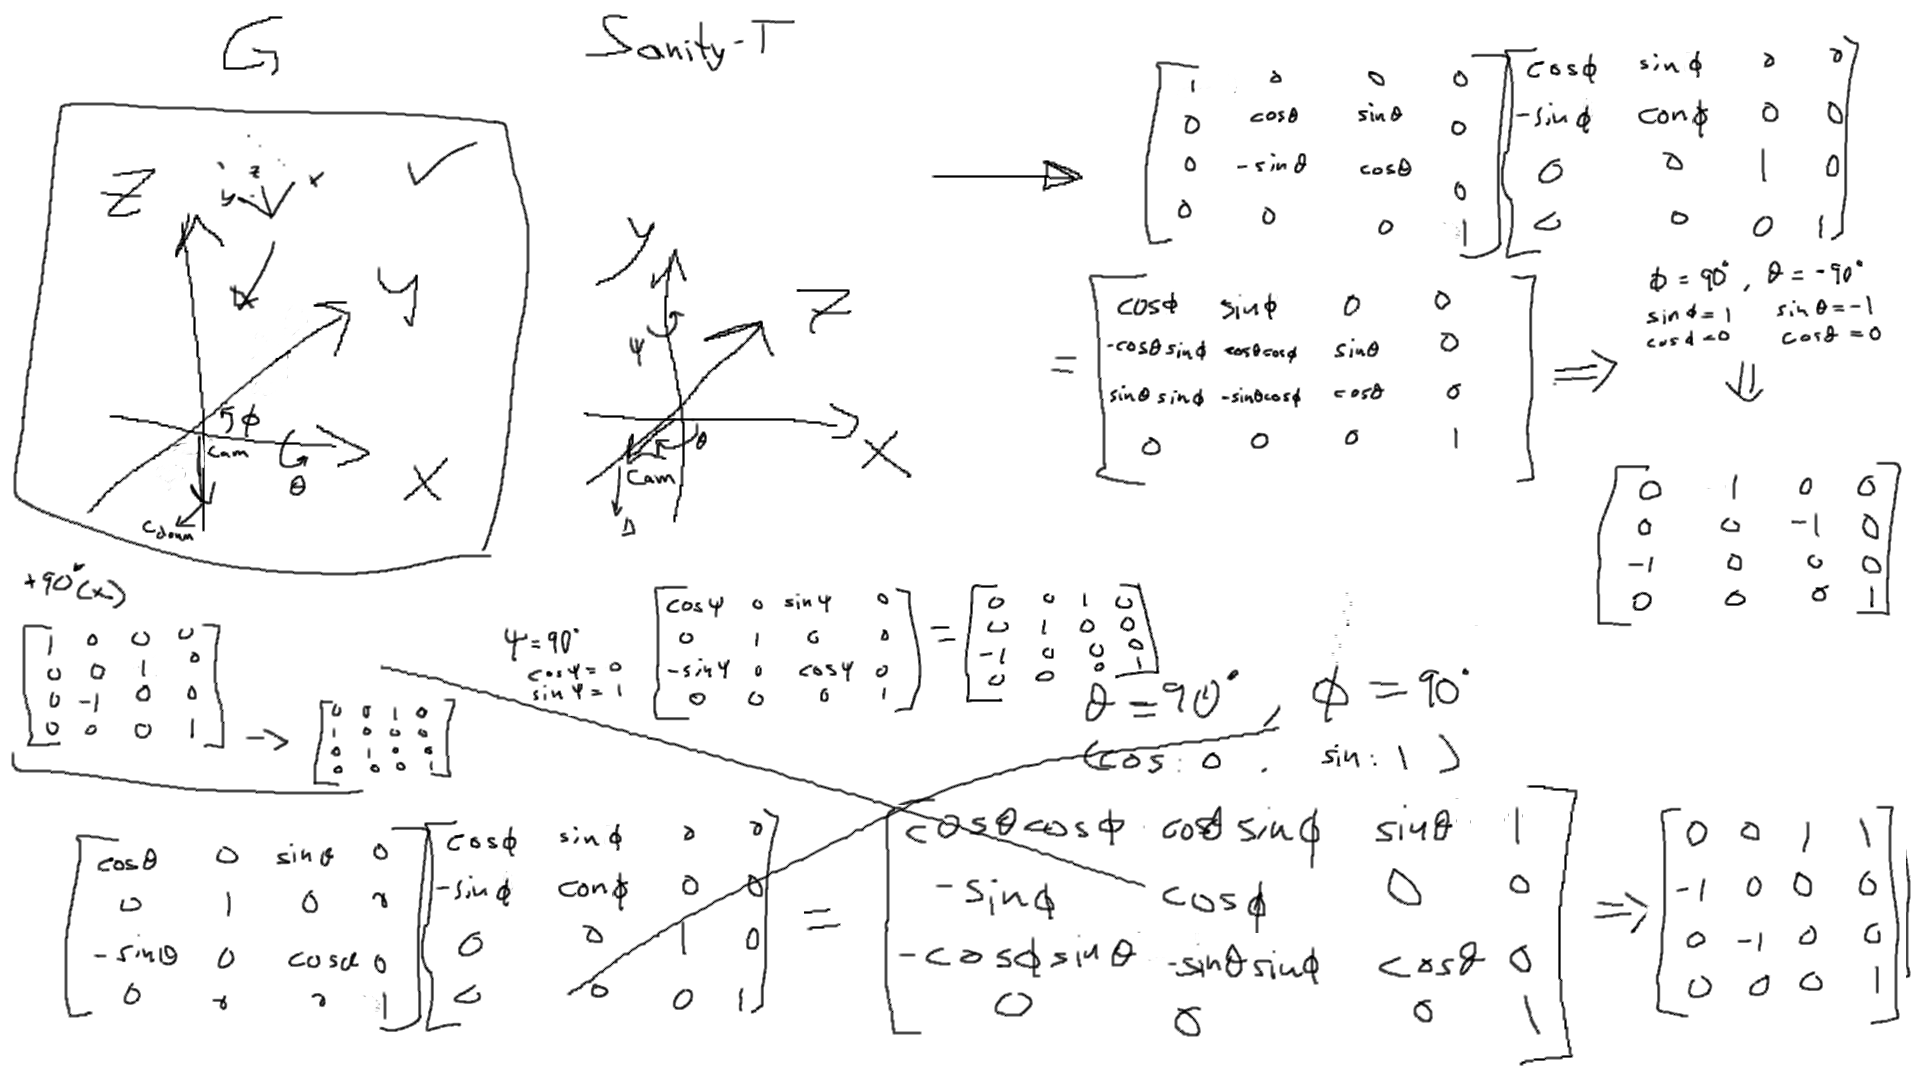 G
Sanity-T
Z
z
x
y
Y
ϕ
Cam
θ
X
Cdown
Y
Z
ψ
θ
X
Cam
D
1 0 0 0
0 cosθ sinθ 0
0 -sinθ cosθ 0
0 0 0 1
cosϕ sinϕ 0 0
-sinϕ conϕ 0 0
0 0 1 0
0 0 0 1
=
cosϕ sinϕ 0 0
-cosθ sinϕ cosθcosϕ sinθ 0
sinθ sinϕ -sinθcosϕ cosθ 0
0 0 0 1
ϕ = 90°, θ = -90°
sinϕ = 1 sinθ = -1
cosϕ = 0 cosθ = 0
0 1 0 0
0 0 -1 0
-1 0 0 0
0 0 0 1
+90°(x)
1 0 0 0
0 0 1 0
0 -1 0 0
0 0 0 1
0 0 1 0
1 0 0 0
0 1 0 0
0 0 0 1
ψ = 90°
cosψ = 0
sinψ = 1
cosψ 0 sinψ 0
0 1 0 0
-sinψ 0 cosψ 0
0 0 0 1
=
0 0 1 0
0 1 0 0
-1 0 0 0
0 0 0 1
θ = 90°, ϕ = 90°
(cos: 0, sin: 1)
cosθ 0 sinθ 0
0 1 0 0
-sinθ 0 cosθ 0
0 0 0 1
cosϕ sinϕ 0 0
-sinϕ conϕ 0 0
0 0 1 0
0 0 0 1
=
cosθcosϕ cosθsinϕ sinθ 1
-sinϕ cosϕ 0 0
-cosϕsinθ -sinθsinϕ cosθ 0
0 0 0 1
0 0 1 1
-1 0 0 0
0 -1 0 0
0 0 0 1